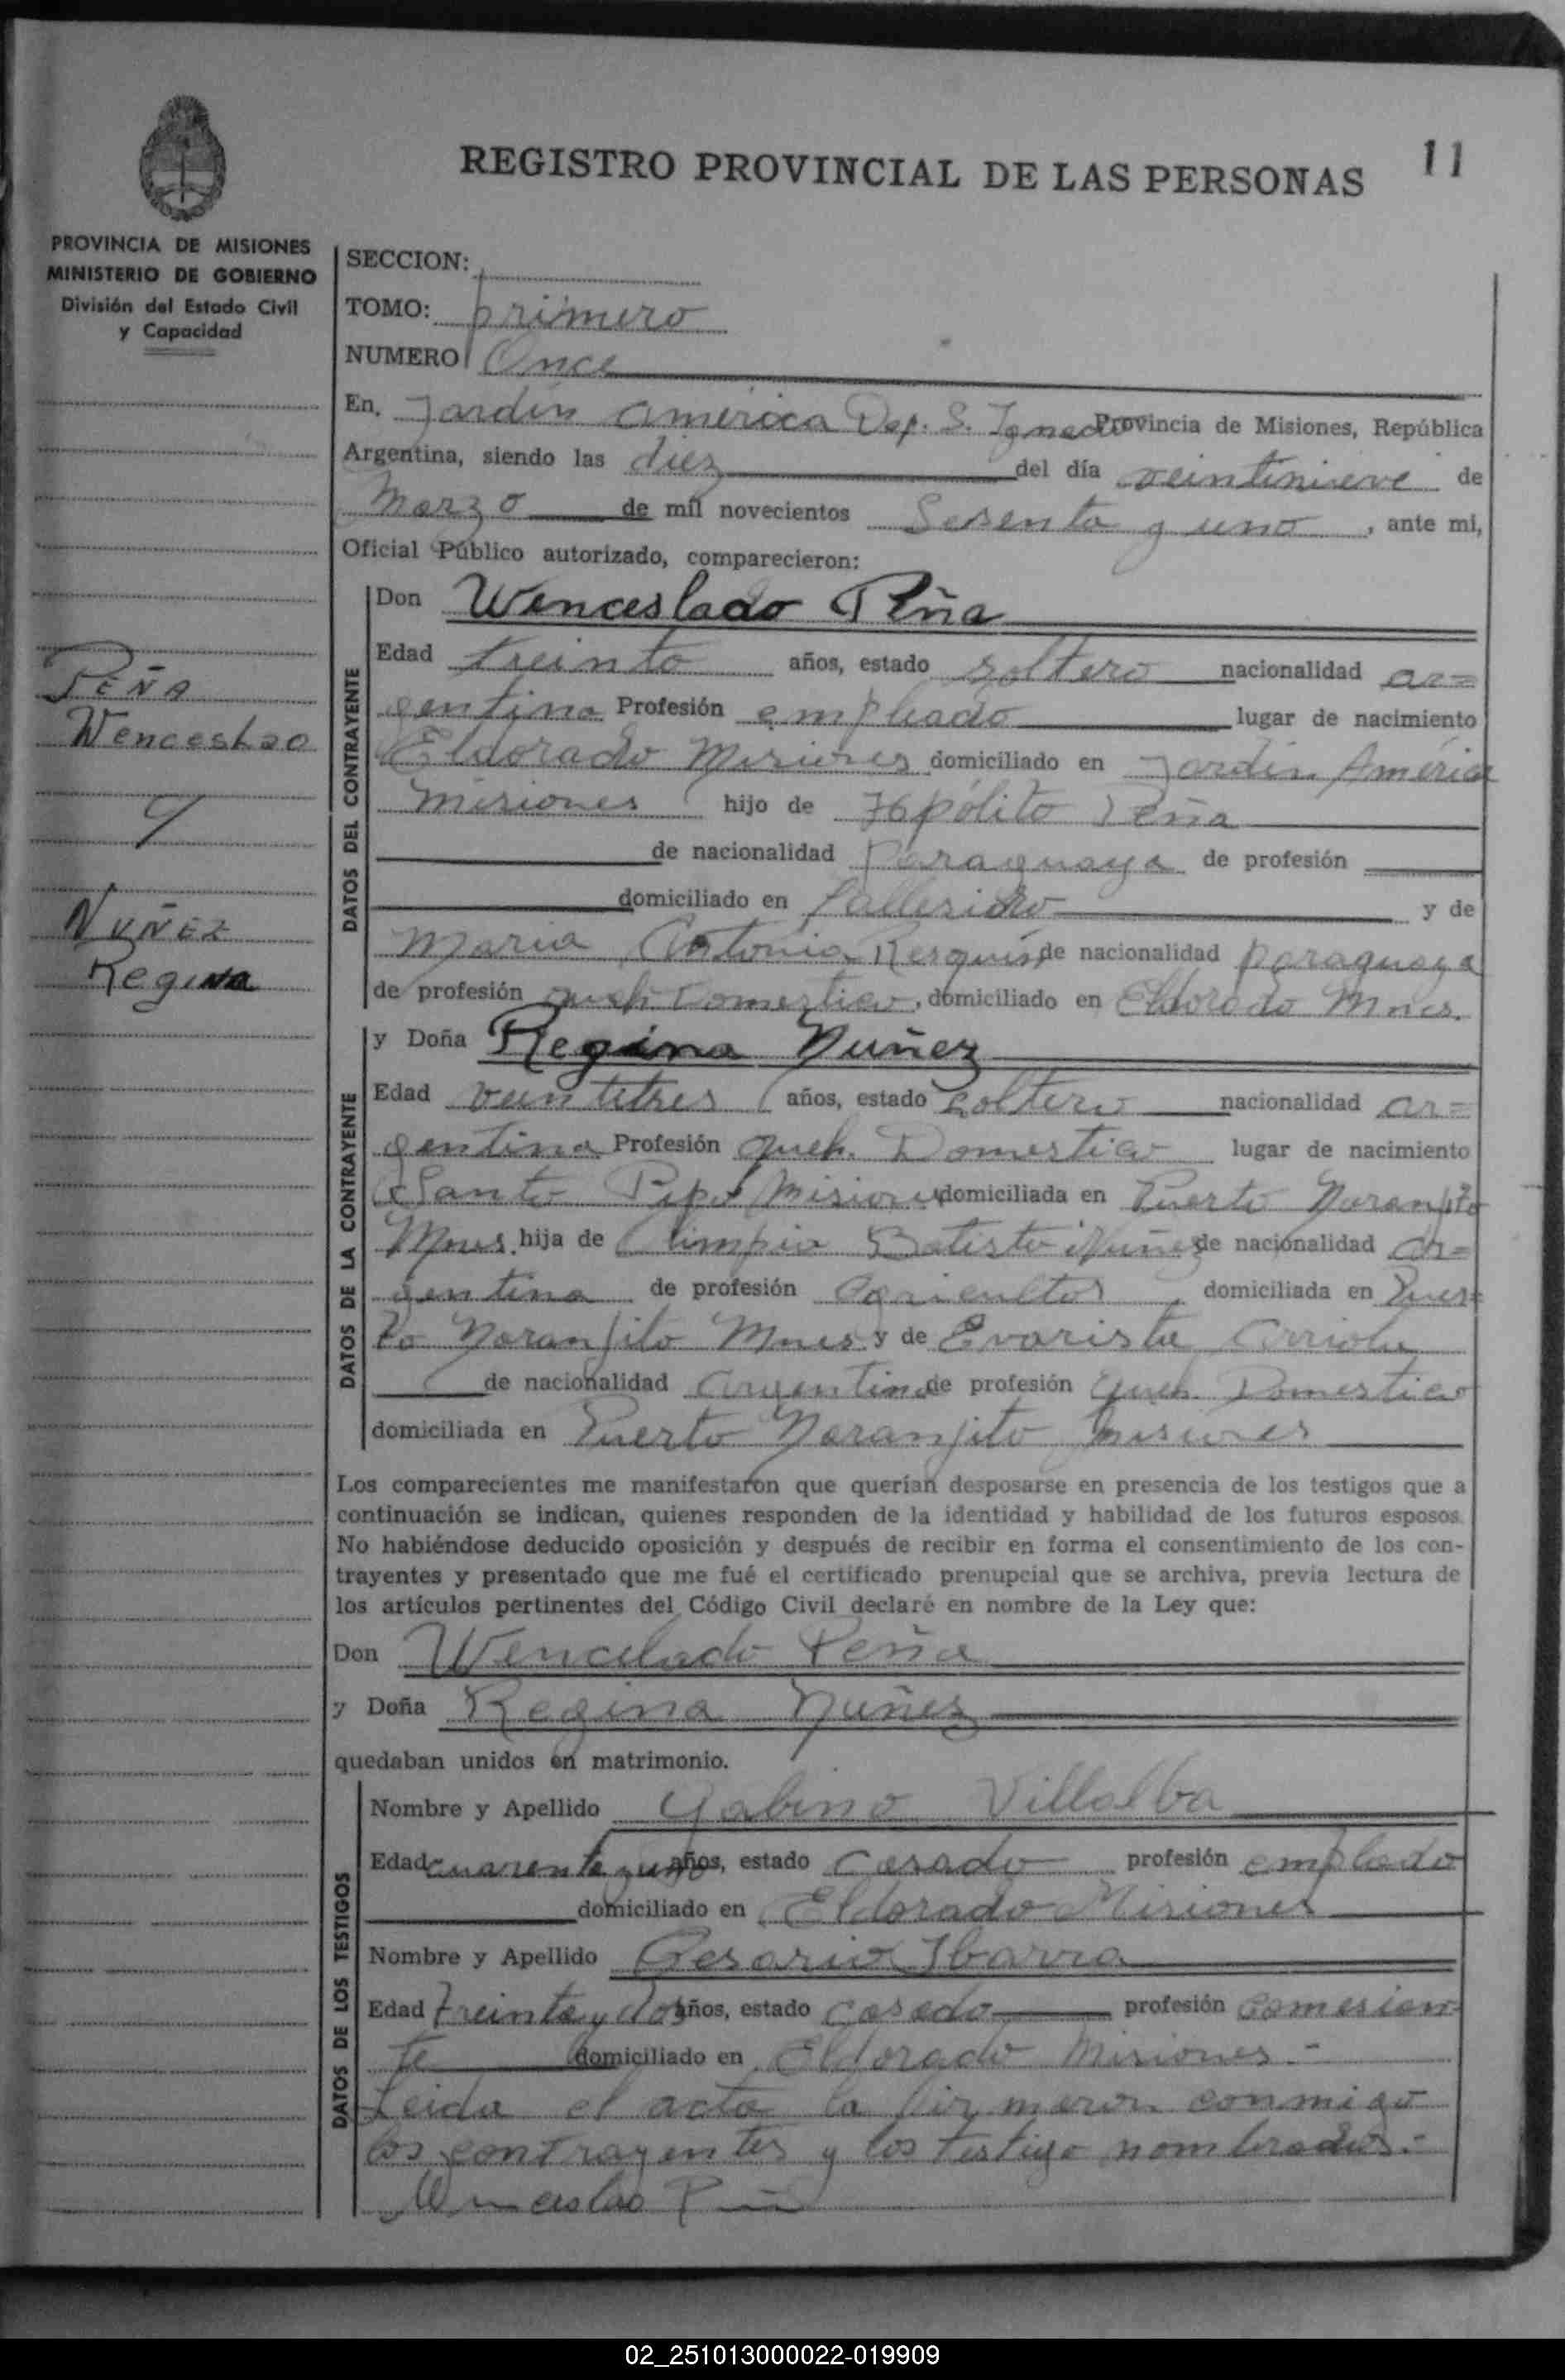 REGISTRO PROVINCIAL DE LAS PERSONAS
11
PROVINCIA DE MISIONES
MINISTERIO DE GOBIERNO
División del Estado Civil
y Capacidad
PEÑA
Wenceslao
y
NUÑEZ
Regina
SECCION:
TOMO: primero
NUMERO Once
En, Jardín America Dep. S. Ignacio Provincia de Misiones, República
Argentina, siendo las diez del día veintinueve de
Marzo de mil novecientos Sesenta y uno, ante mi,
Oficial Público autorizado, comparecieron:
DATOS DEL CONTRAYENTE
Don Wenceslado Peña
Edad treinta años, estado soltero nacionalidad ar=
gentina Profesión empleado lugar de nacimiento
Eldorado Misiones domiciliado en Jardín América
Misiones hijo de Hipólito Peña
de nacionalidad Paraguaya de profesión
domiciliado en fallecido y de
Maria Antonia Resquín de nacionalidad paraguaya
de profesión queh. Domestico, domiciliado en Eldorado Mnes.
DATOS DE LA CONTRAYENTE
y Doña Regina Nuñez
Edad veintitres años, estado soltera nacionalidad ar=
gentina Profesión queh. Domestico lugar de nacimiento
Santo Pipó Misiones domiciliada en Puerto Naranjito
Mnes. hija de Olimpio Batista Nuñez de nacionalidad ar=
gentina de profesión Agricultor, domiciliada en Puer=
to Naranjito Mnes y de Evarista Arriola
de nacionalidad Argentina de profesión Queh. Domestico
domiciliada en Puerto Naranjito Misiones
Los comparecientes me manifestaron que querían desposarse en presencia de los testigos que a
continuación se indican, quienes responden de la identidad y habilidad de los futuros esposos.
No habiéndose deducido oposición y después de recibir en forma el consentimiento de los con-
trayentes y presentado que me fué el certificado prenupcial que se archiva, previa lectura de
los artículos pertinentes del Código Civil declaré en nombre de la Ley que:
Don Wencelado Peña
y Doña Regina Nuñez
quedaban unidos en matrimonio.
DATOS DE LOS TESTIGOS
Nombre y Apellido Gabino Villalba
Edad cuarenta y uno años, estado casado profesión empleado
domiciliado en Eldorado Misiones
Nombre y Apellido Cesario Ibarra
Edad treinta y dos años, estado casado profesión comercian
te domiciliado en Eldorado Misiones.-
Leida el acta la firmaron conmigo
los contrayentes y los testigo nombrados.-
Wenceslao
02_251013000022-019909